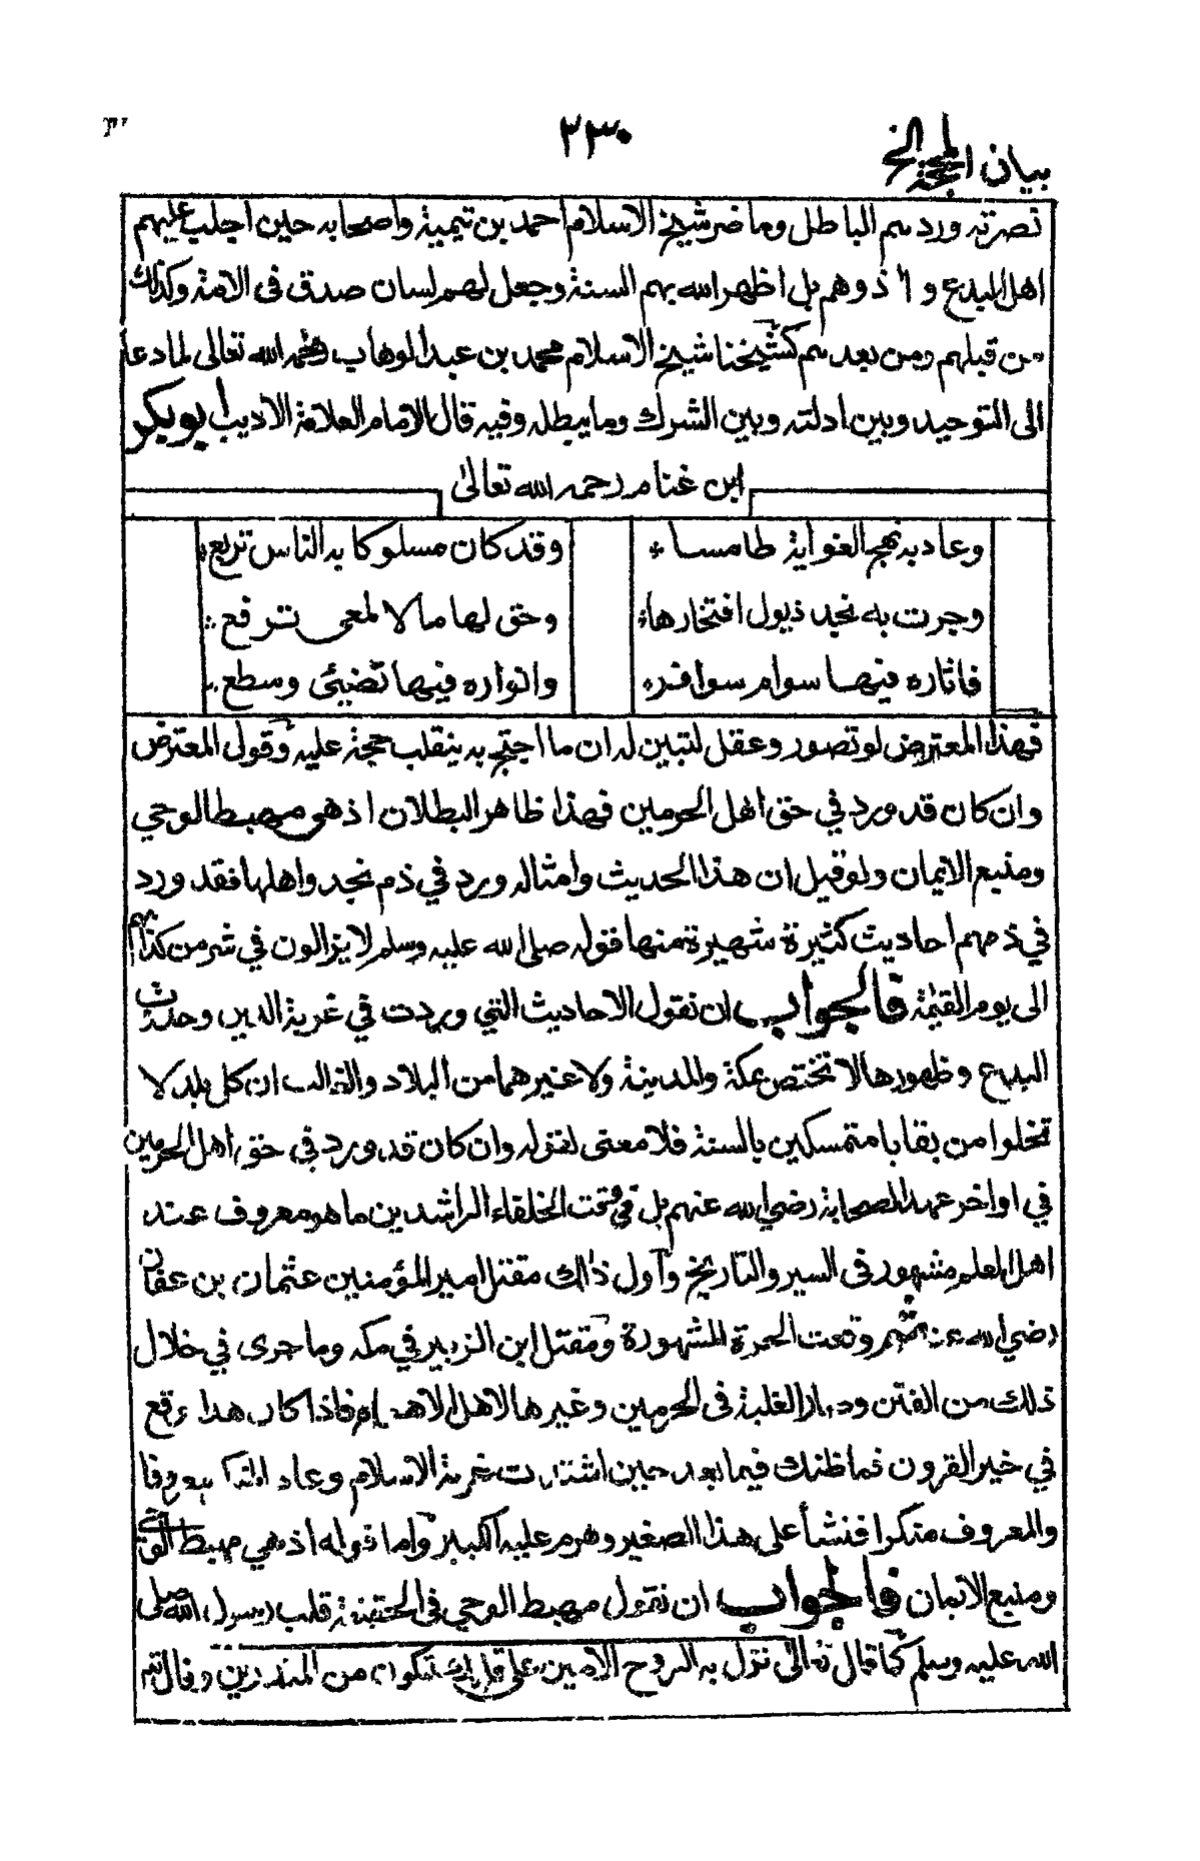 بيان المحجة الخ
٢٣٠
نصرته ورد سم الباطل وما ضر شيخ الاسلام احمد بن تيمية واصحابه حين اجلب عليهم
اهل البدع وآذوهم بل اظهر الله بهم السنة وجعل لهم لسان صدق فى الامة وكذلك
من قبلهم ومن بعدهم كشيخنا شيخ الاسلام محمد بن عبد الوهاب رحمه الله تعالى لما دعا
الى التوحيد وبين ادلته وبين الشرك وما يبطله وفيه قال الامام العلامة الاديب أبو بكر
ابن غنام رحمه الله تعالى
وعاد به نهج الغواية طامسا وقد كان مسلوكا به الناس تربع
وجرت به نجد ذيول افتخارها وحق لها مالالمعى ترفع
فاثاره فيها سوام سوافر وانواره فيها تضيئ وسطع
فهذا المعترض لو تصور وعقل لتبين له ان ما احتج به ينقلب حجة عليه وقول المعترض
وان كان قد ورد في حق اهل الحرمين فهذا ظاهر البطلان اذ هو مهبط الوحي
ومنبع الايمان ولو قيل ان هذا الحديث وامثاله ورد في ذم نجد واهلها فقد ورد
في ذمهم احاديث كثيرة شهيرة منها قوله صلى الله عليه وسلم لا يزالون في شر من كذابهم
الى يوم القيمة فالجواب ان نقول الاحاديث التي وردت في غربة الدين وحدث
البدع وظهورها لا تختص بمكة والمدينة ولا غيرهما من البلاد والغالب ان كل بلد لا
تخلوا من بقايا متمسكين بالسنة فلا معنى لقوله وان كان قد ورد فى حق اهل الحرمين
في اواخر عهد الصحابة رضي الله عنهم بل في وقت الخلفاء الراشدين ما هو معروف عند
اهل العلم مشهور فى السير والتاريخ واول ذلك مقتل امير المؤمنين عثمان بن عفان
رضي الله عنه ثم وقعت الحرة المشهورة ومقتل ابن الزبير في مكه وما جرى في خلال
ذلك من الفتن وصار الغلبة فى الحرمين وغيرها لاهل الاهواء فاذا كان هذا وقع
في خير القرون فما ظنك فيما بعد حين اشتدت غربة الاسلام وعاد المنكر معروفا
والمعروف منكرا فنشأ على هذا الصغير وهرم عليه الكبير واما قوله اذ هي مهبط
ومنبع الايمان فالجواب ان نقول مهبط الوحي فى الحقيقة قلب رسول الله صلى
الله عليه وسلم كما قال تعالى نزل به الروح الامين على قلبك لتكون من المنذرين وقال تع